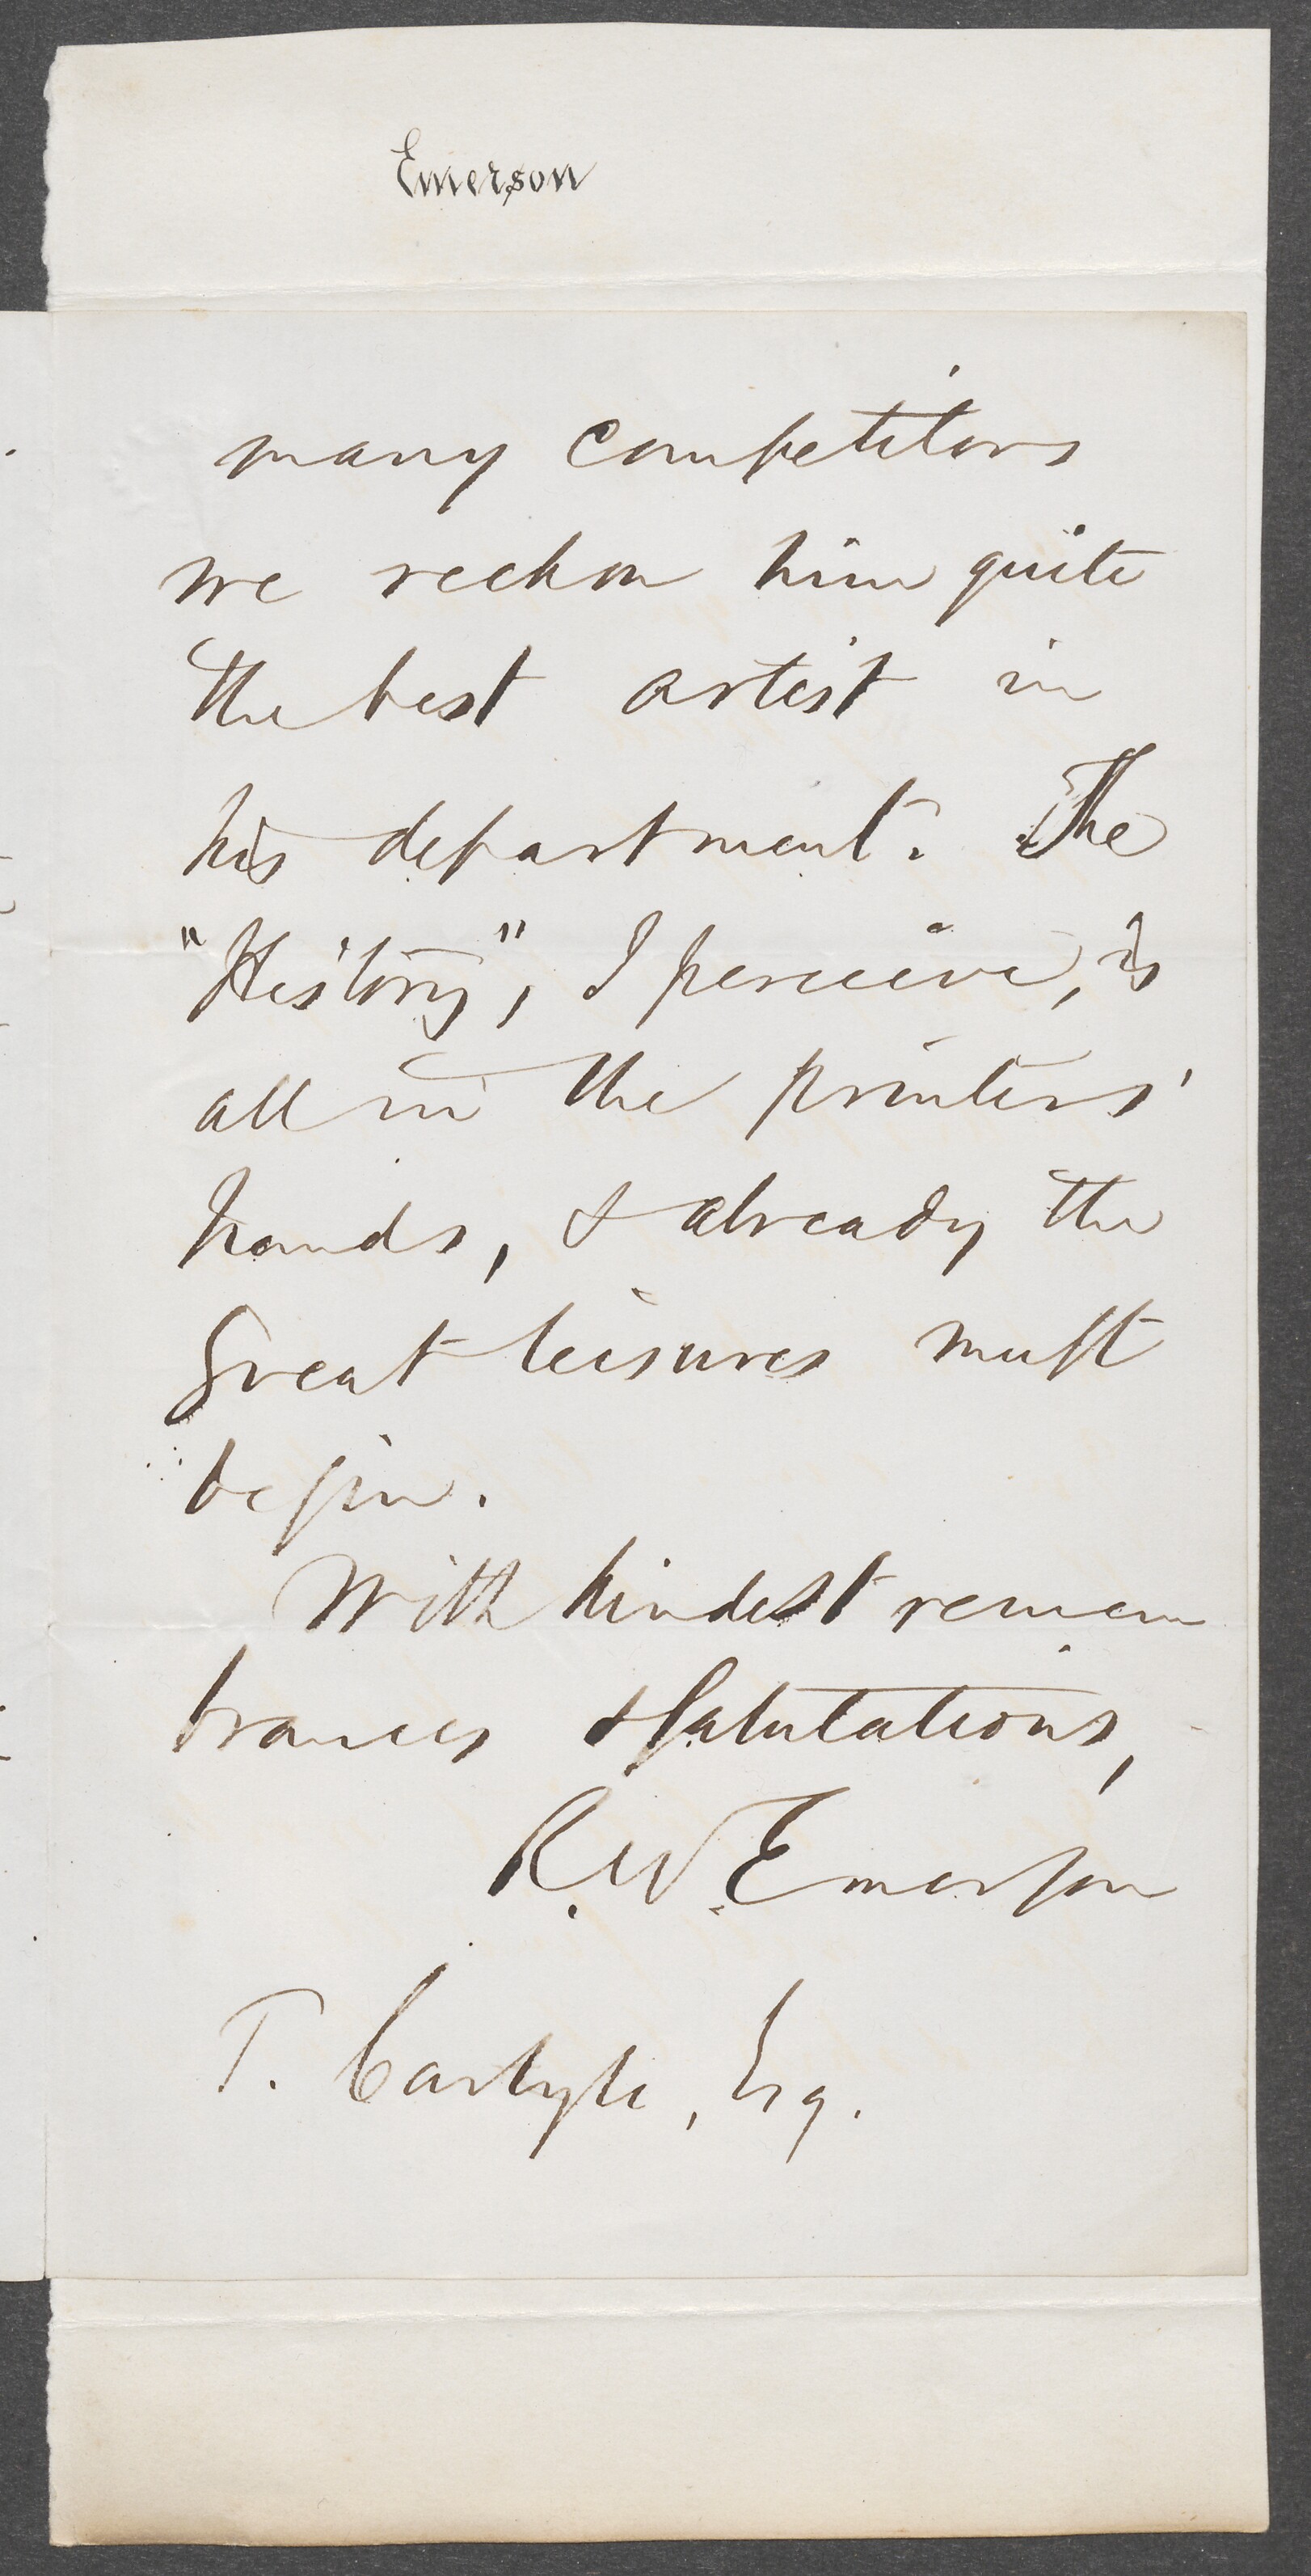 Emerson
many competitors
we reckon him quite
the best artist in
his department. The
"History", I perceive, is
all in the printers'
hands, & already the
great leisures must
begin.
With kindest remem
brances & salutations,
R. W. Emerson
T. Carlyle, Esq.